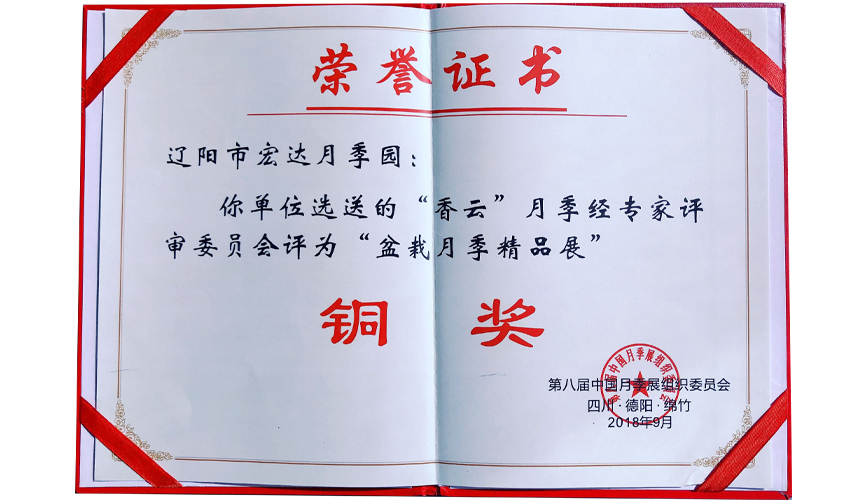 荣誉证书
辽阳市宏达月季园：
你单位选送的“香云”月季经专家评
审委员会评为“盆栽月季精品展”
铜奖
第八届中国月季展组织委员会
第八届中国月季展组织委员会
四川·德阳·绵竹
2018年9月